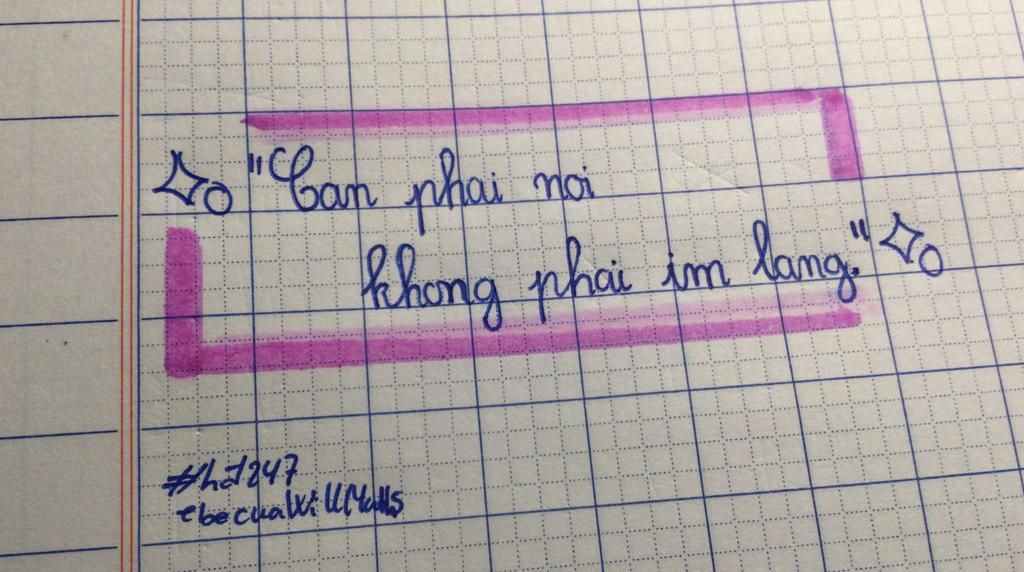 "Can phai noi
khong phai im lang."
#hd247
ebecuaWillMalls